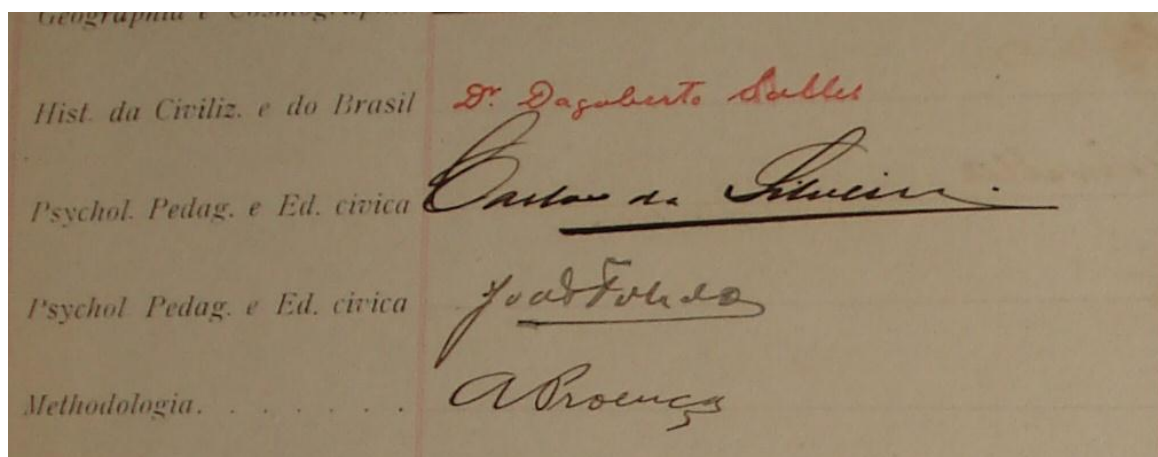 Geographia e Cosmographia
Hist. da Civiliz. e do Brasil Dr. Dagoberto Salles
Psychol. Pedag. e Ed. civica Carlos da Silveira.
Psychol. Pedag. e Ed. civica João Toledo
Methodologia. . . . . . . A Proença